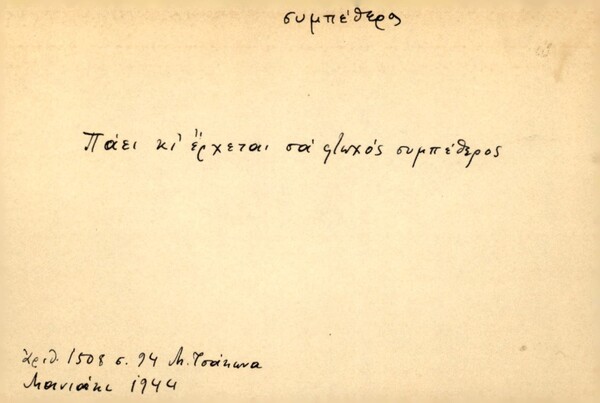 συμπέθερος
Πάει κι' ἔρχεται σά φτωχός συμπέθερος
Ἀριθ. 1508 σ. 94 Μ. Τσάκωνα
Μανιάκι 1944